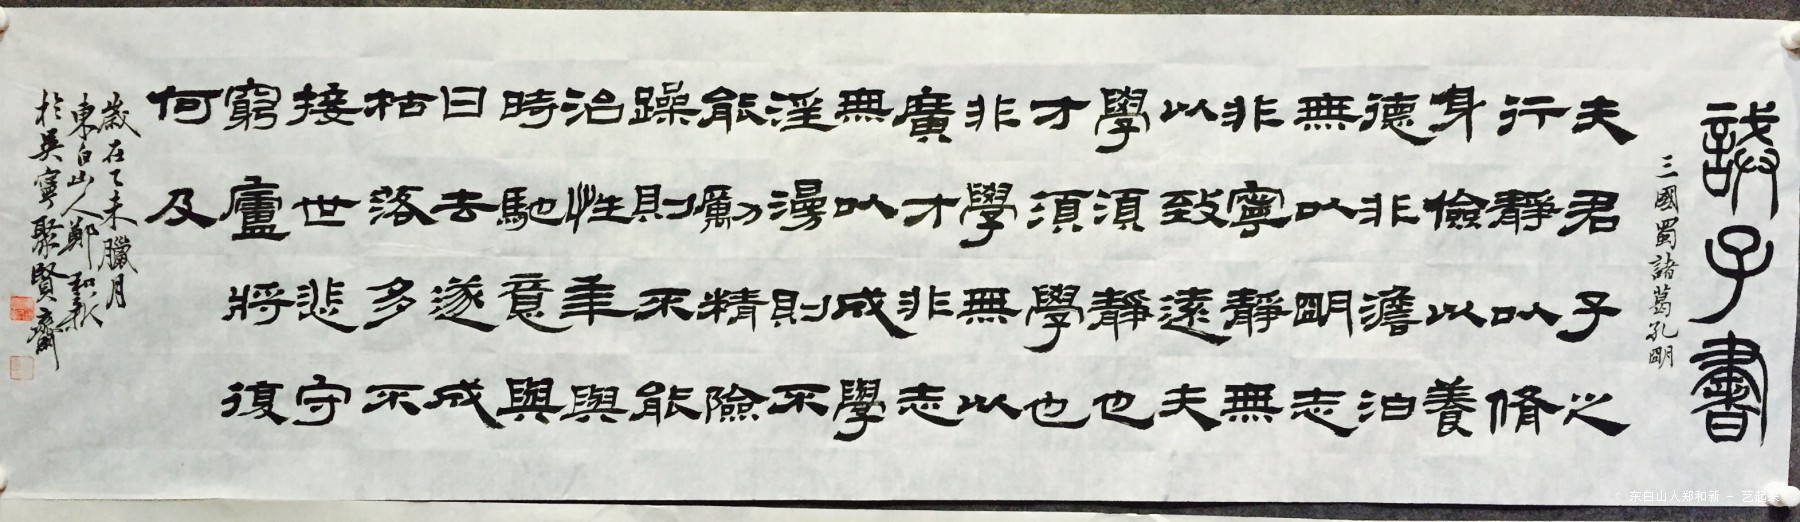 誡子書
三國蜀諸葛孔明
夫君子之
行靜以脩
身儉以養
德非澹泊
無以明志
非寧靜無
以致遠夫
學須靜也
才須學也
非學無以
廣才非志
無以成學
淫漫則不
能勵精險
躁則不能
治性年與
時馳意與
日去遂成
枯落多不
接世悲守
窮廬將復
何及
歲在乙未臘月
東白山人鄭和新
於吳寧聚賢齋
东白山人郑和新 - 艺起